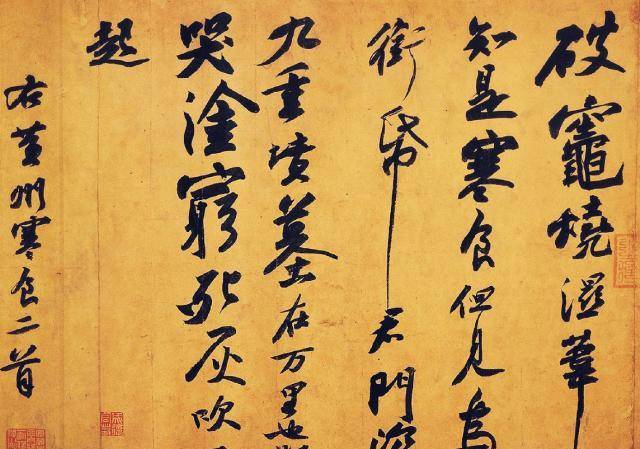 破竈燒溼葦
知是寒食但見烏
銜帋君門深
九重墳墓在万里也
哭塗窮死灰吹
起
右黃州寒食二首